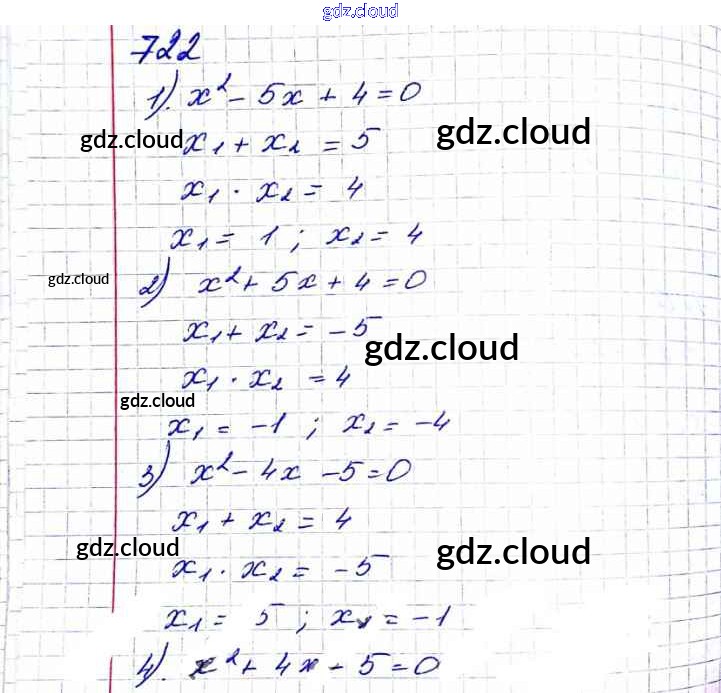 gdz.cloud
722
1). x² - 5x + 4 = 0
gdz.cloud x₁ + x₂ = 5 gdz.cloud
x₁ · x₂ = 4
x₁ = 1 ; x₂ = 4
gdz.cloud 2) x² + 5x + 4 = 0
x₁ + x₂ = -5
gdz.cloud
x₁ · x₂ = 4
gdz.cloud
x₁ = -1 ; x₂ = -4
3) x² - 4x - 5 = 0
x₁ + x₂ = 4
gdz.cloud gdz.cloud
x₁ · x₂ = -5
x₁ = 5 ; x₂ = -1
4). x² + 4x - 5 = 0